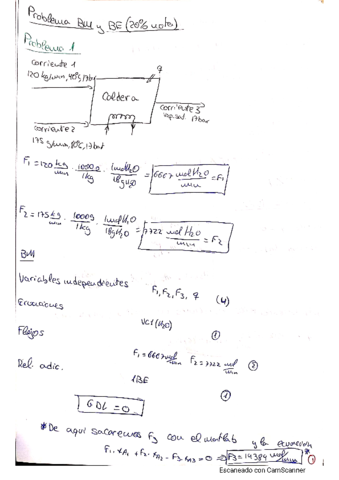 Problema BM y BE (20% nota)
Problema 1
corriente 1
120 kg/min, 40ºC, 17bar
q
Caldera
corriente 3
vap. sat 17bar
corriente 2
175 kg/min, 80ºC, 17 bar
F1 = 120 kg/min · 1000g/1kg · 1mol H2O/18g H2O = 6667 mol H2O/min = F1
F2 = 175 kg/min · 1000g/1kg · 1mol H2O/18g H2O = 9722 mol H2O/min = F2
BM
Variables independientes F1, F2, F3, q (4)
Ecuaciones
1 (H2O) (1)
Flujos F1 = 6667 mol/min F2 = 9722 mol/min (2)
Rel. adic. 1BE (1)
GDL = 0
*De aquí sacaremos F3 con el matlab y la ecuación
F3 = 16389 mol/min
Escaneado con CamScanner